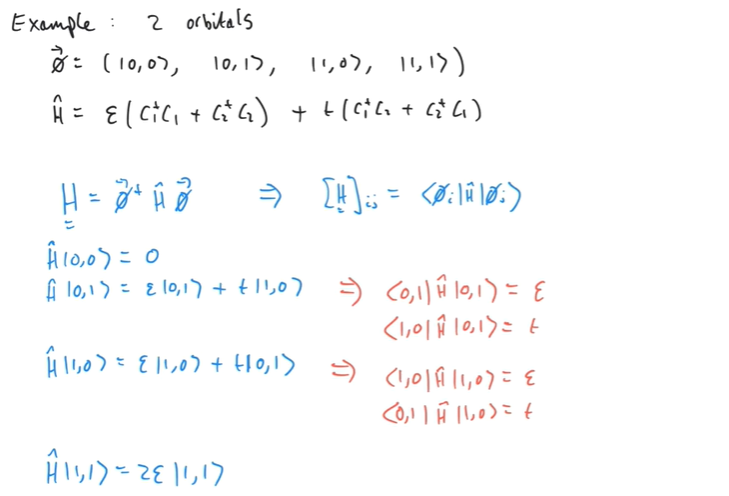 Example : 2 orbitals
ϕ⃗ = (|0,0⟩, |0,1⟩, |1,0⟩, |1,1⟩)
Ĥ = ε(c₁⁺c₁ + c₂⁺c₂) + t(c₁⁺c₂ + c₂⁺c₁)
H = ϕ⃗⁺ Ĥ ϕ⃗ ⇒ [H]ᵢⱼ = ⟨ϕᵢ|Ĥ|ϕⱼ⟩
Ĥ|0,0⟩ = 0
Ĥ|0,1⟩ = ε|0,1⟩ + t|1,0⟩ ⇒ ⟨0,1|Ĥ|0,1⟩ = ε
⟨1,0|Ĥ|0,1⟩ = t
Ĥ|1,0⟩ = ε|1,0⟩ + t|0,1⟩ ⇒ ⟨1,0|Ĥ|1,0⟩ = ε
⟨0,1|Ĥ|1,0⟩ = t
Ĥ|1,1⟩ = 2ε|1,1⟩